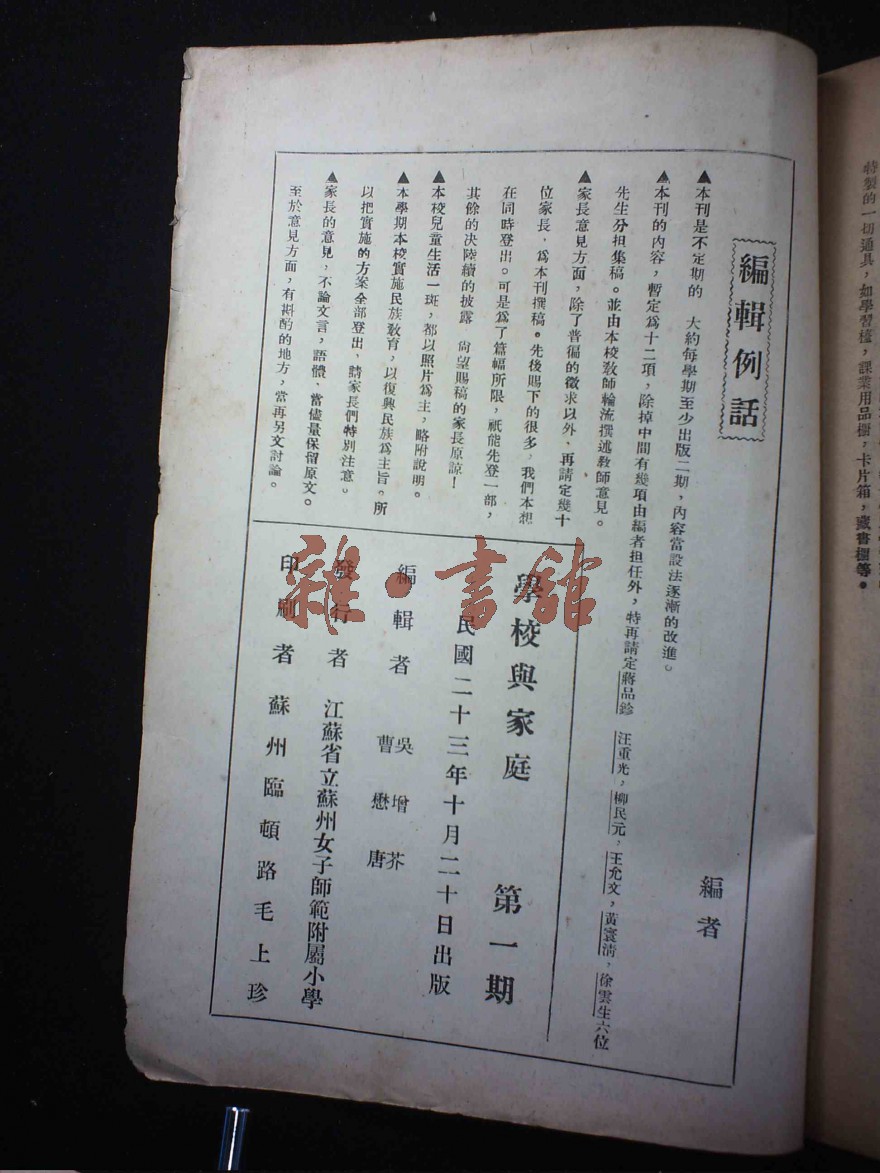 編輯例話
編者
▲本刊是不定期的　大約每學期至少出版二期，內容當設法逐漸的改進。
▲本刊的內容，暫定爲十二項，除掉中間有幾項由編者担任外，特再請定蔣品鉁　汪重光，柳民元，王允文，黃寰淸，徐雲生六位
先生分担集稿。並由本校敎師輪流撰述敎師意見。
▲家長意見方面，除了普徧的徵求以外、再請定幾十
位家長，爲本刊撰稿。先後賜下的很多，我們本想
在同時登出。可是爲了篇幅所限，祇能先登一部，
其餘的决陸續的披露　尙望賜稿的家長原諒！
▲本校兒童生活一斑，都以照片爲主，略附說明。
▲本學期本校實施民族敎育，以復興民族爲主旨。所
以把實施的方案全部登出、請家長們特別注意。
▲家長的意見，不論文言，語體、當儘量保留原文。
至於意見方面，有斟酌的地方，當再另文討論。
學校與家庭　第一期
民國二十三年十月二十日出版
編輯者　吳增芥
曹懋唐
發行者　江蘇省立蘇州女子師範附屬小學
印刷者　蘇州臨頓路毛上珍
雜·書舘
特製的一切道具，如學習檯，課業用品櫃，卡片箱，藏書櫃等。